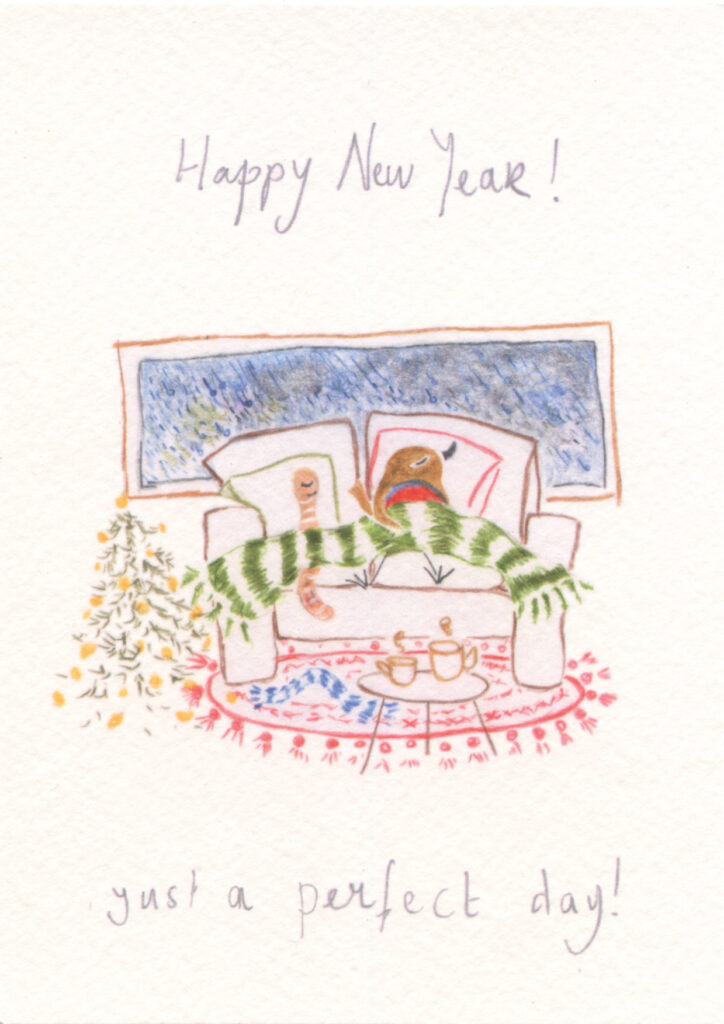 Happy New Year!
just a perfect day!